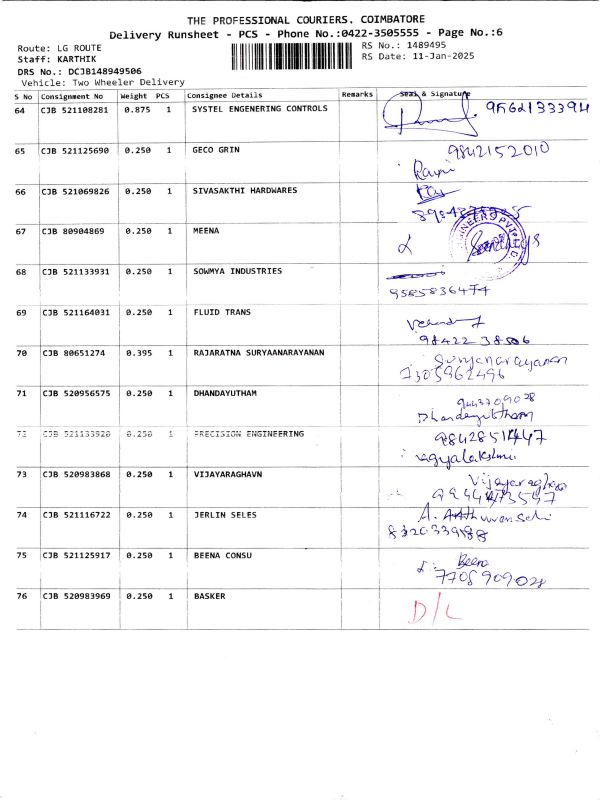 THE PROFESSIONAL COURIERS. COIMBATORE
Delivery Runsheet - PCS - Phone No.:0422-3505555 - Page No.:6
Route: LG ROUTE
RS No.: 1489495
Staff: KARTHIK
RS Date: 11-Jan-2025
DRS No.: DCJB148949506
Vehicle: Two Wheeler Delivery
S No Consignment No Weight PCS Consignee Details Remarks Seal & Signature
64 CJB 521108281 0.875 1 SYSTEL ENGENERING CONTROLS
65 CJB 521125690 0.250 1 GECO GRIN 9842152010
66 CJB 521069826 0.250 1 SIVASAKTHI HARDWARES
67 CJB 80904869 0.250 1 MEENA
68 CJB 521133931 0.250 1 SOWMYA INDUSTRIES
9585836474
69 CJB 521164031 0.250 1 FLUID TRANS
70 CJB 80651274 0.395 1 RAJARATNA SURYAANARAYANAN Suryanarayanan
7305962496
71 CJB 520956575 0.250 1 DHANDAYUTHAM
Dhandayutham
72 CJB 521133920 0.250 1 PRECISION ENGINEERING
73 CJB 520983868 0.250 1 VIJAYARAGHAVN
74 CJB 521116722 0.250 1 JERLIN SELES
75 CJB 521125917 0.250 1 BEENA CONSU Beena
7708909028
76 CJB 520983969 0.250 1 BASKER D/L